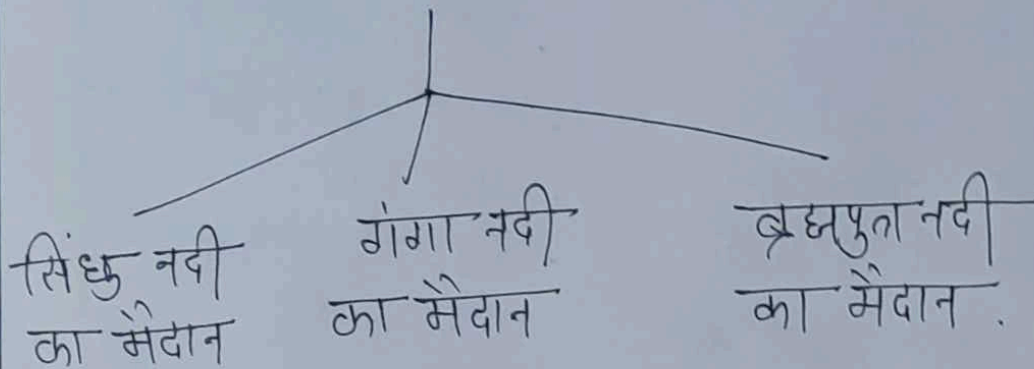 सिंधु नदी
का मैदान
गंगा नदी
का मैदान
ब्रह्मपुत्र नदी
का मैदान .